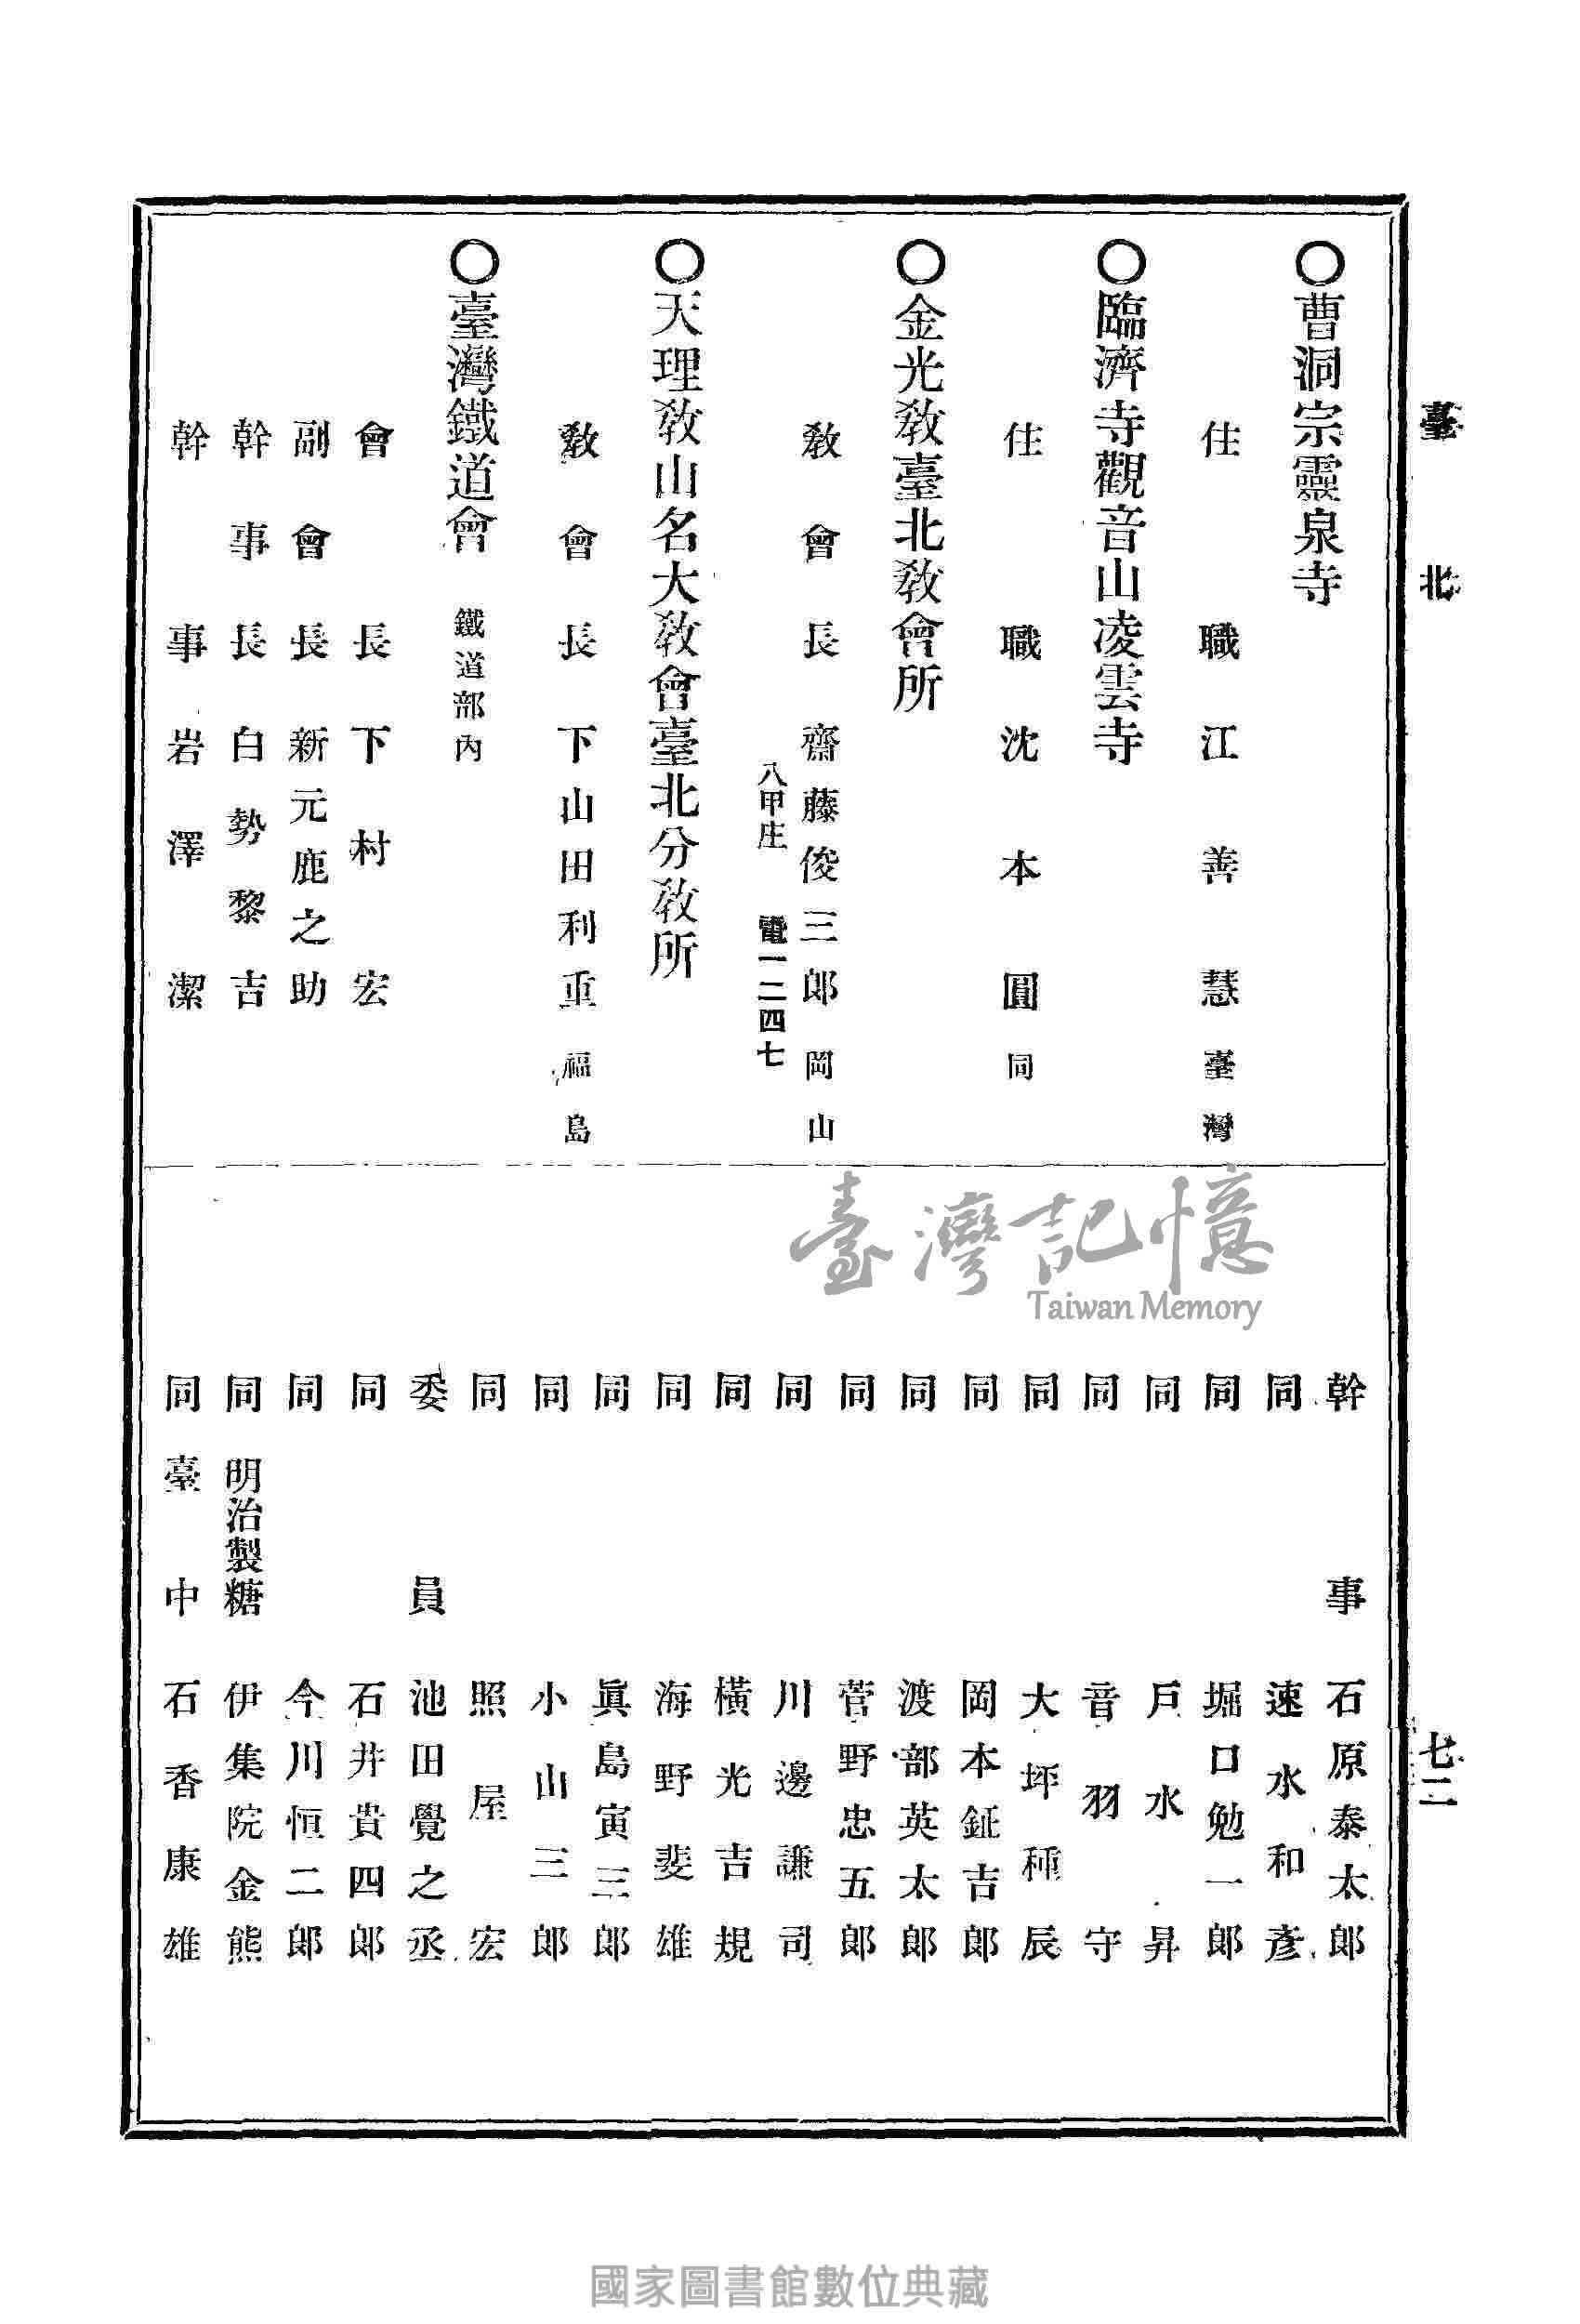 臺北
七二
○曹洞宗靈泉寺
住職 江善慧 臺灣
○臨濟寺觀音山凌雲寺
住職 沈本圓 同
○金光敎臺北敎會所
敎會長 齋藤俊三郎 岡山
八甲庄 電一二四七
○天理敎山名大敎會臺北分敎所
敎會長 下山田利重 福島
○臺灣鐵道會 鐵道部內
會長 下村宏
副會長 新元鹿之助
幹事長 白勢黎吉
幹事 岩澤潔
幹事 石原泰太郎
同 速水和彥
同 堀口勉一郎
同 戶水昇
同 音羽守
同 大坪種辰
同 岡本鉦吉郎
同 渡部英太郎
同 菅野忠五郎
同 川邊謙司
同 橫光吉規
同 海野斐雄
同 眞島寅三郎
同 小山三郎
同 照屋宏
委員 池田覺之丞
同 石井貴四郎
同 今川恒二郎
同 明治製糖 伊集院金熊
同 臺中 石香康雄
臺灣記憶
Taiwan Memory
國家圖書館數位典藏